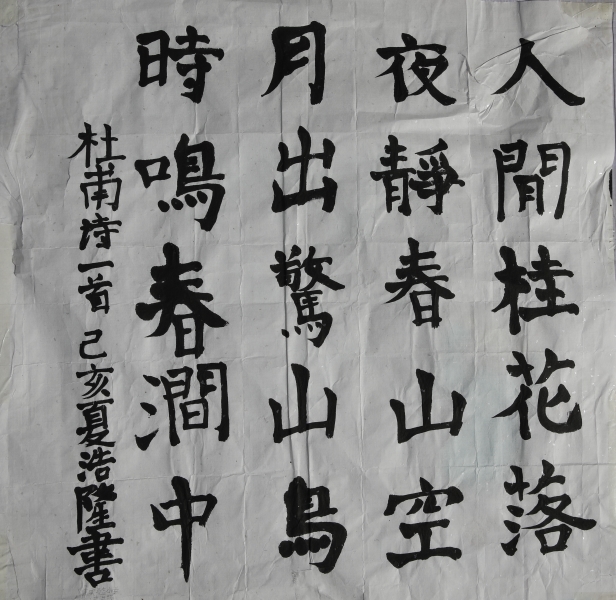 人閒桂花落
夜靜春山空
月出驚山鳥
時鳴春澗中
杜甫诗一首 己亥夏浩隆書